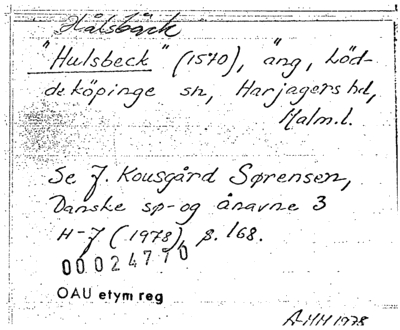 Hålsbäck
"Hulsbeck" (1570), äng, Löd-
deköpinge sn, Harjagers hd,
Malm.l.
Se J. Kousgård Sørensen,
Danske sø- og ånavne 3
H-J (1978), s. 168.
00024710
OAU etym reg
A-MH 1978